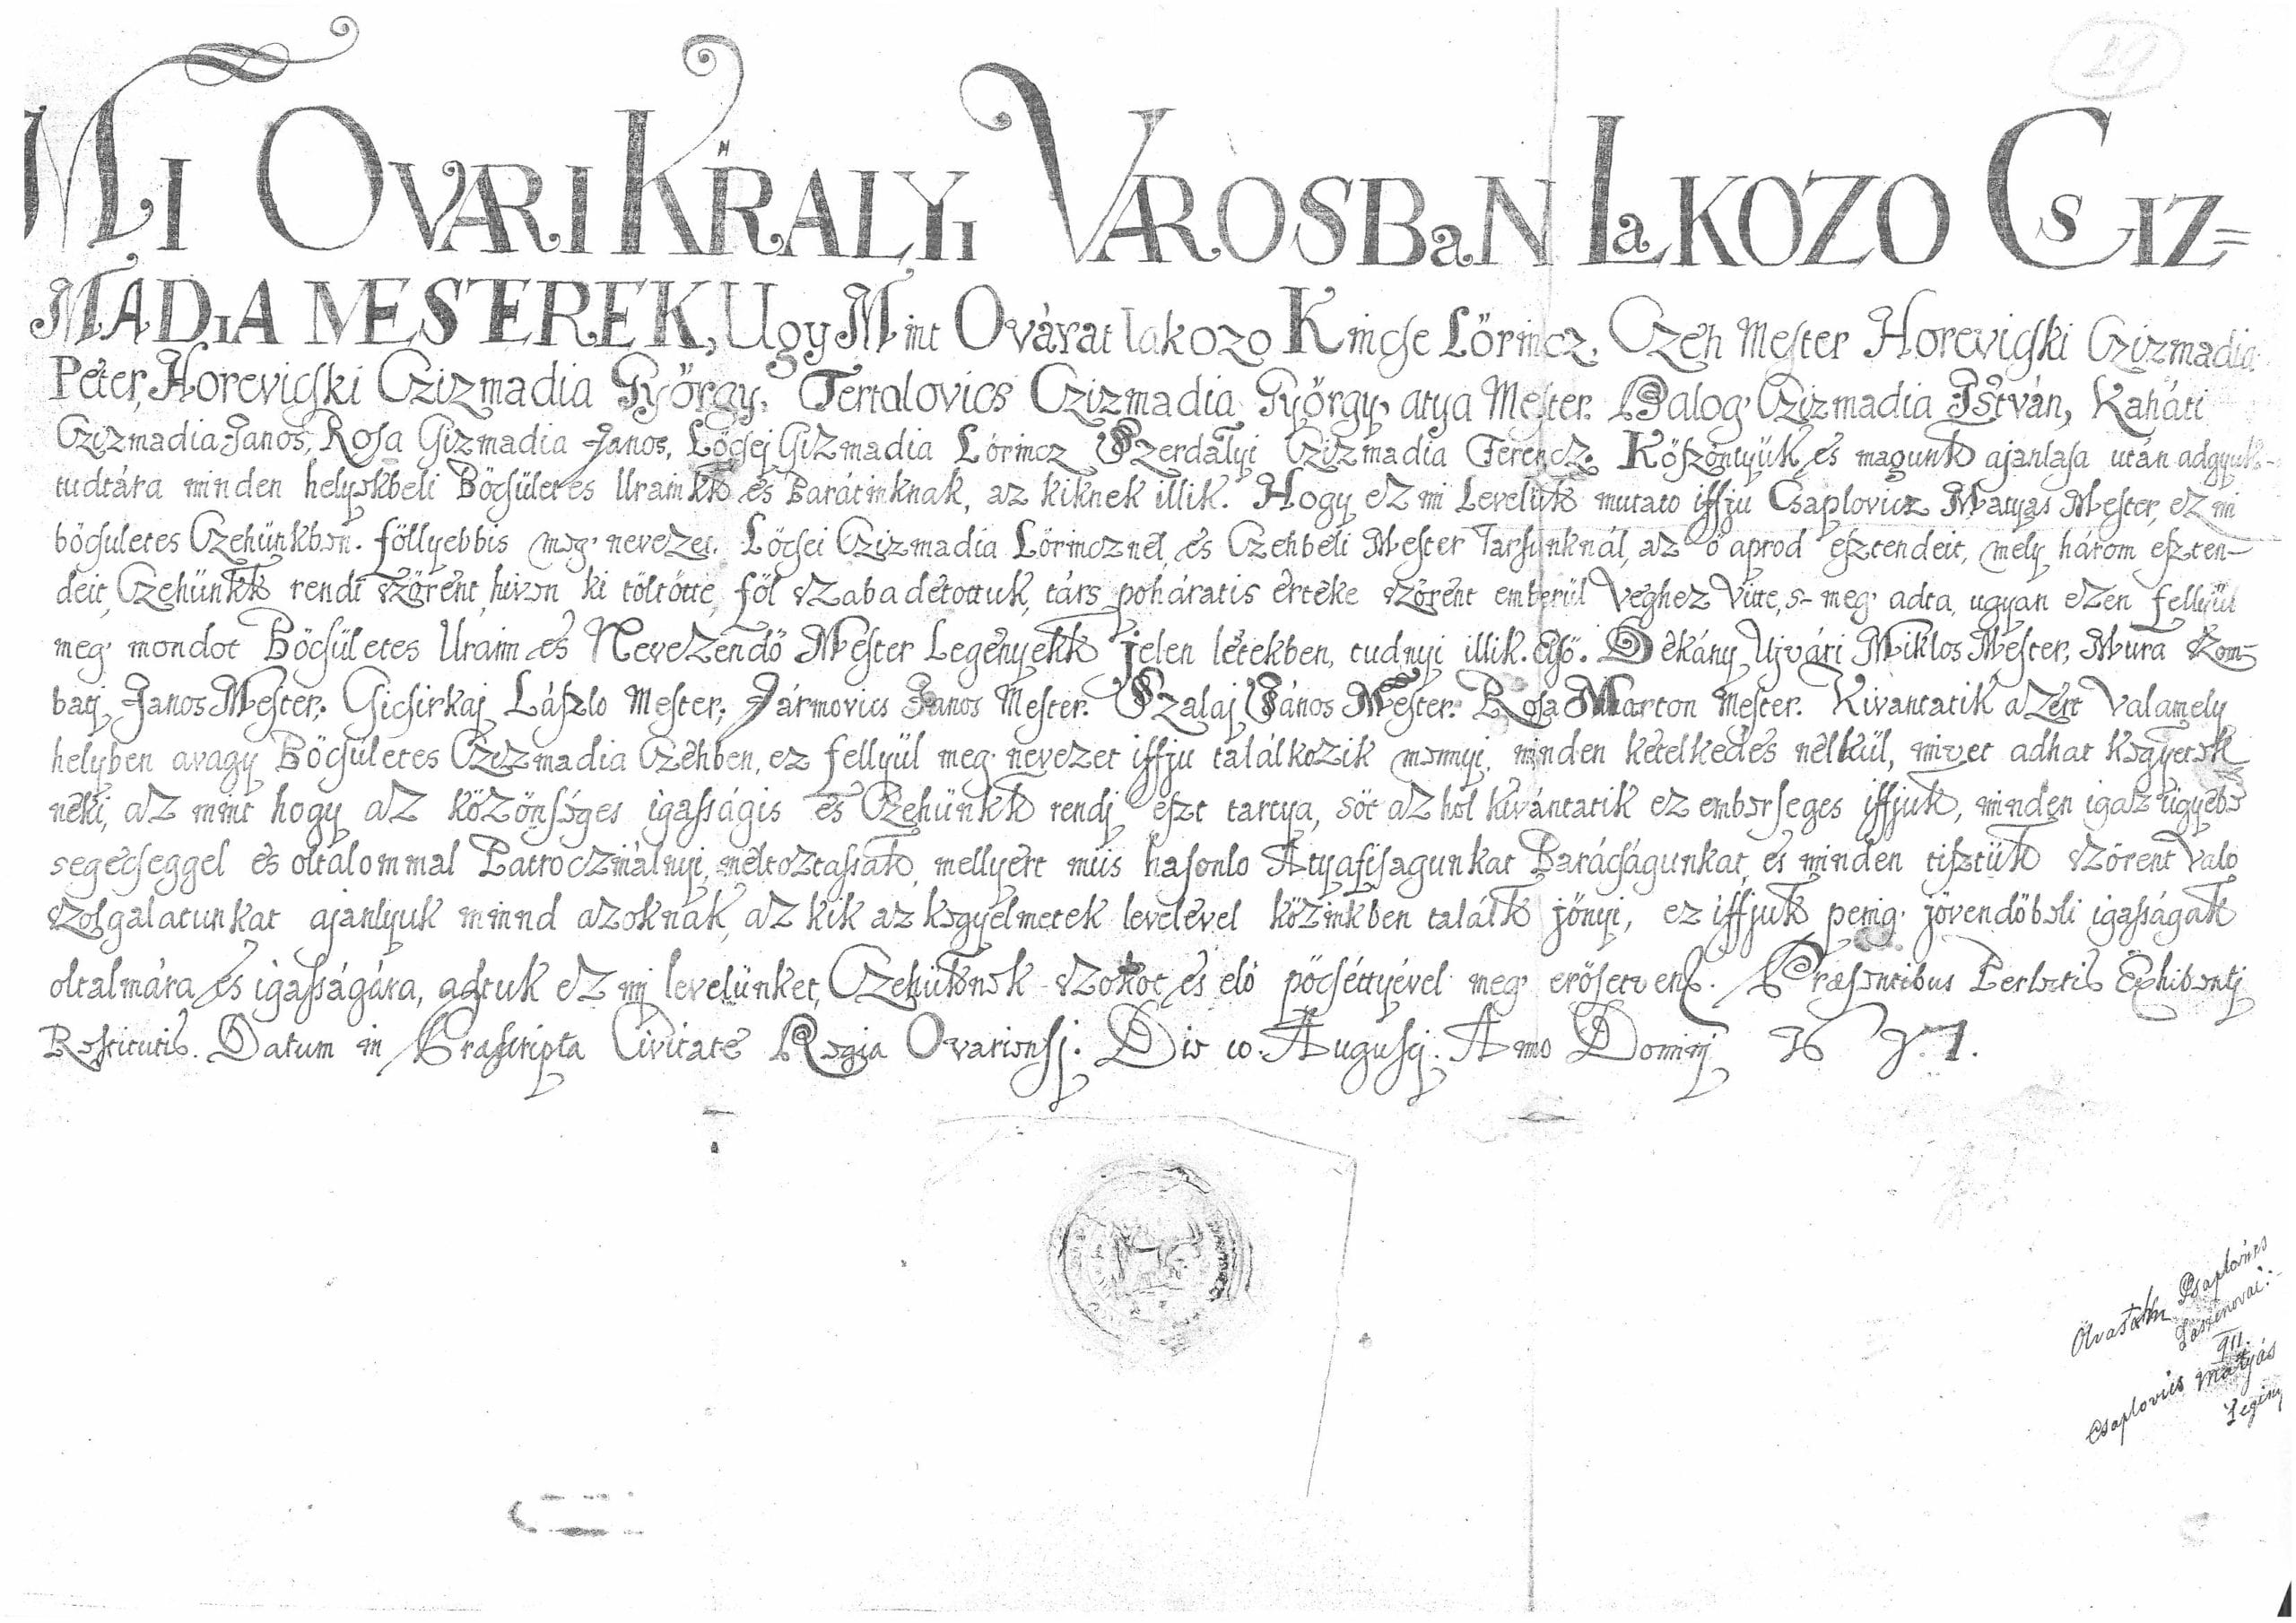 29
MI OVARI KIRALYI VAROSBaN LaKOZO CsIZ=
MADIA MESTEREK, Ugy Mint Ovárat lakozo Kincse Lőrincz, Czeh Mester Horevicski Czizmadia
Péter, Horevicski Czizmadia György, Tertalovics Czizmadia György, atya Mester. Balog Czizmadia István, Kaháti
Czizmadia Janos, Rosa Cizmadia Janos, Lőcsej Cizmadia Lőrincz Szerdalyi Czizmadia Ferencz. Köszöntyük és magunk ajanlasa után adgyuk
tudtára minden helyekbeli Böcsületes Urainkk és Barátinknak, az kiknek illik. Hogy ez mi Levelünk mutato iffju Csaplovicz Matyas Mester, ez mi
böcsuletes Czehünkben. föllyebbis meg nevezet. Lőcsei Czizmadia Lőrincznél, és Czehbeli Mester Tarsunknál, az ő aprod esztendeit, mely három eszten-
deit, Czehünkk rendi szörént, hiven ki töltötte, föl szabadétottuk, társ poháratis értéke szörént emberül Véghez Vitte, s- meg adta, ugyan ezen fellyül
meg mondot Böcsületes Uraim és Nevezendő Mester Legényekk jelen létekben, tudnyi illik. Első. Dékány Ujvári Miklos Mester, Mura Szom-
batj Janos Mester; Gicsirkaj László Mester; Jármovics Janos Mester. Szalaj János Mester. Rosa Marton Mester. Kivantatik azért Valamely
helyben avagy Böcsületes Czizmadia Czéhben, ez fellyül meg nevezet iffju találkozik mennyi, minden kételkedés nélkül, mivet adhat kegyetek
néki, az mint hogy az közönséges igasságis és Czehünkk rendj eszt tartya, söt az hol kivántatik ez emberseges iffjuk, minden igaz ügyébe
segétséggel és oltalommal Patroczinálnyi, méltoztassak, mellyért miis hasonlo Atyafisagunkat Barátságunkat, és minden tisztük szörent Valo
szolgalatunkat ajanlyuk mind azoknak, az kik az kegyelmetek levelével közinkben találk jönyi, ez iffjuk penig jövendöbeli igasságak
oltalmára és igasságára, adtuk ez mi levelünket, Czehünknek szokot és elö pöcséttyével meg erösetven. Præsentibus Perlectis Exhibentj
Restitutis. Datum in Præscripta Civitate Regia Ovariensj. Die 10. Augustj. Anno Dominj 1671.
Csaplovics
911.
Csaplovics Mátyás
Legény